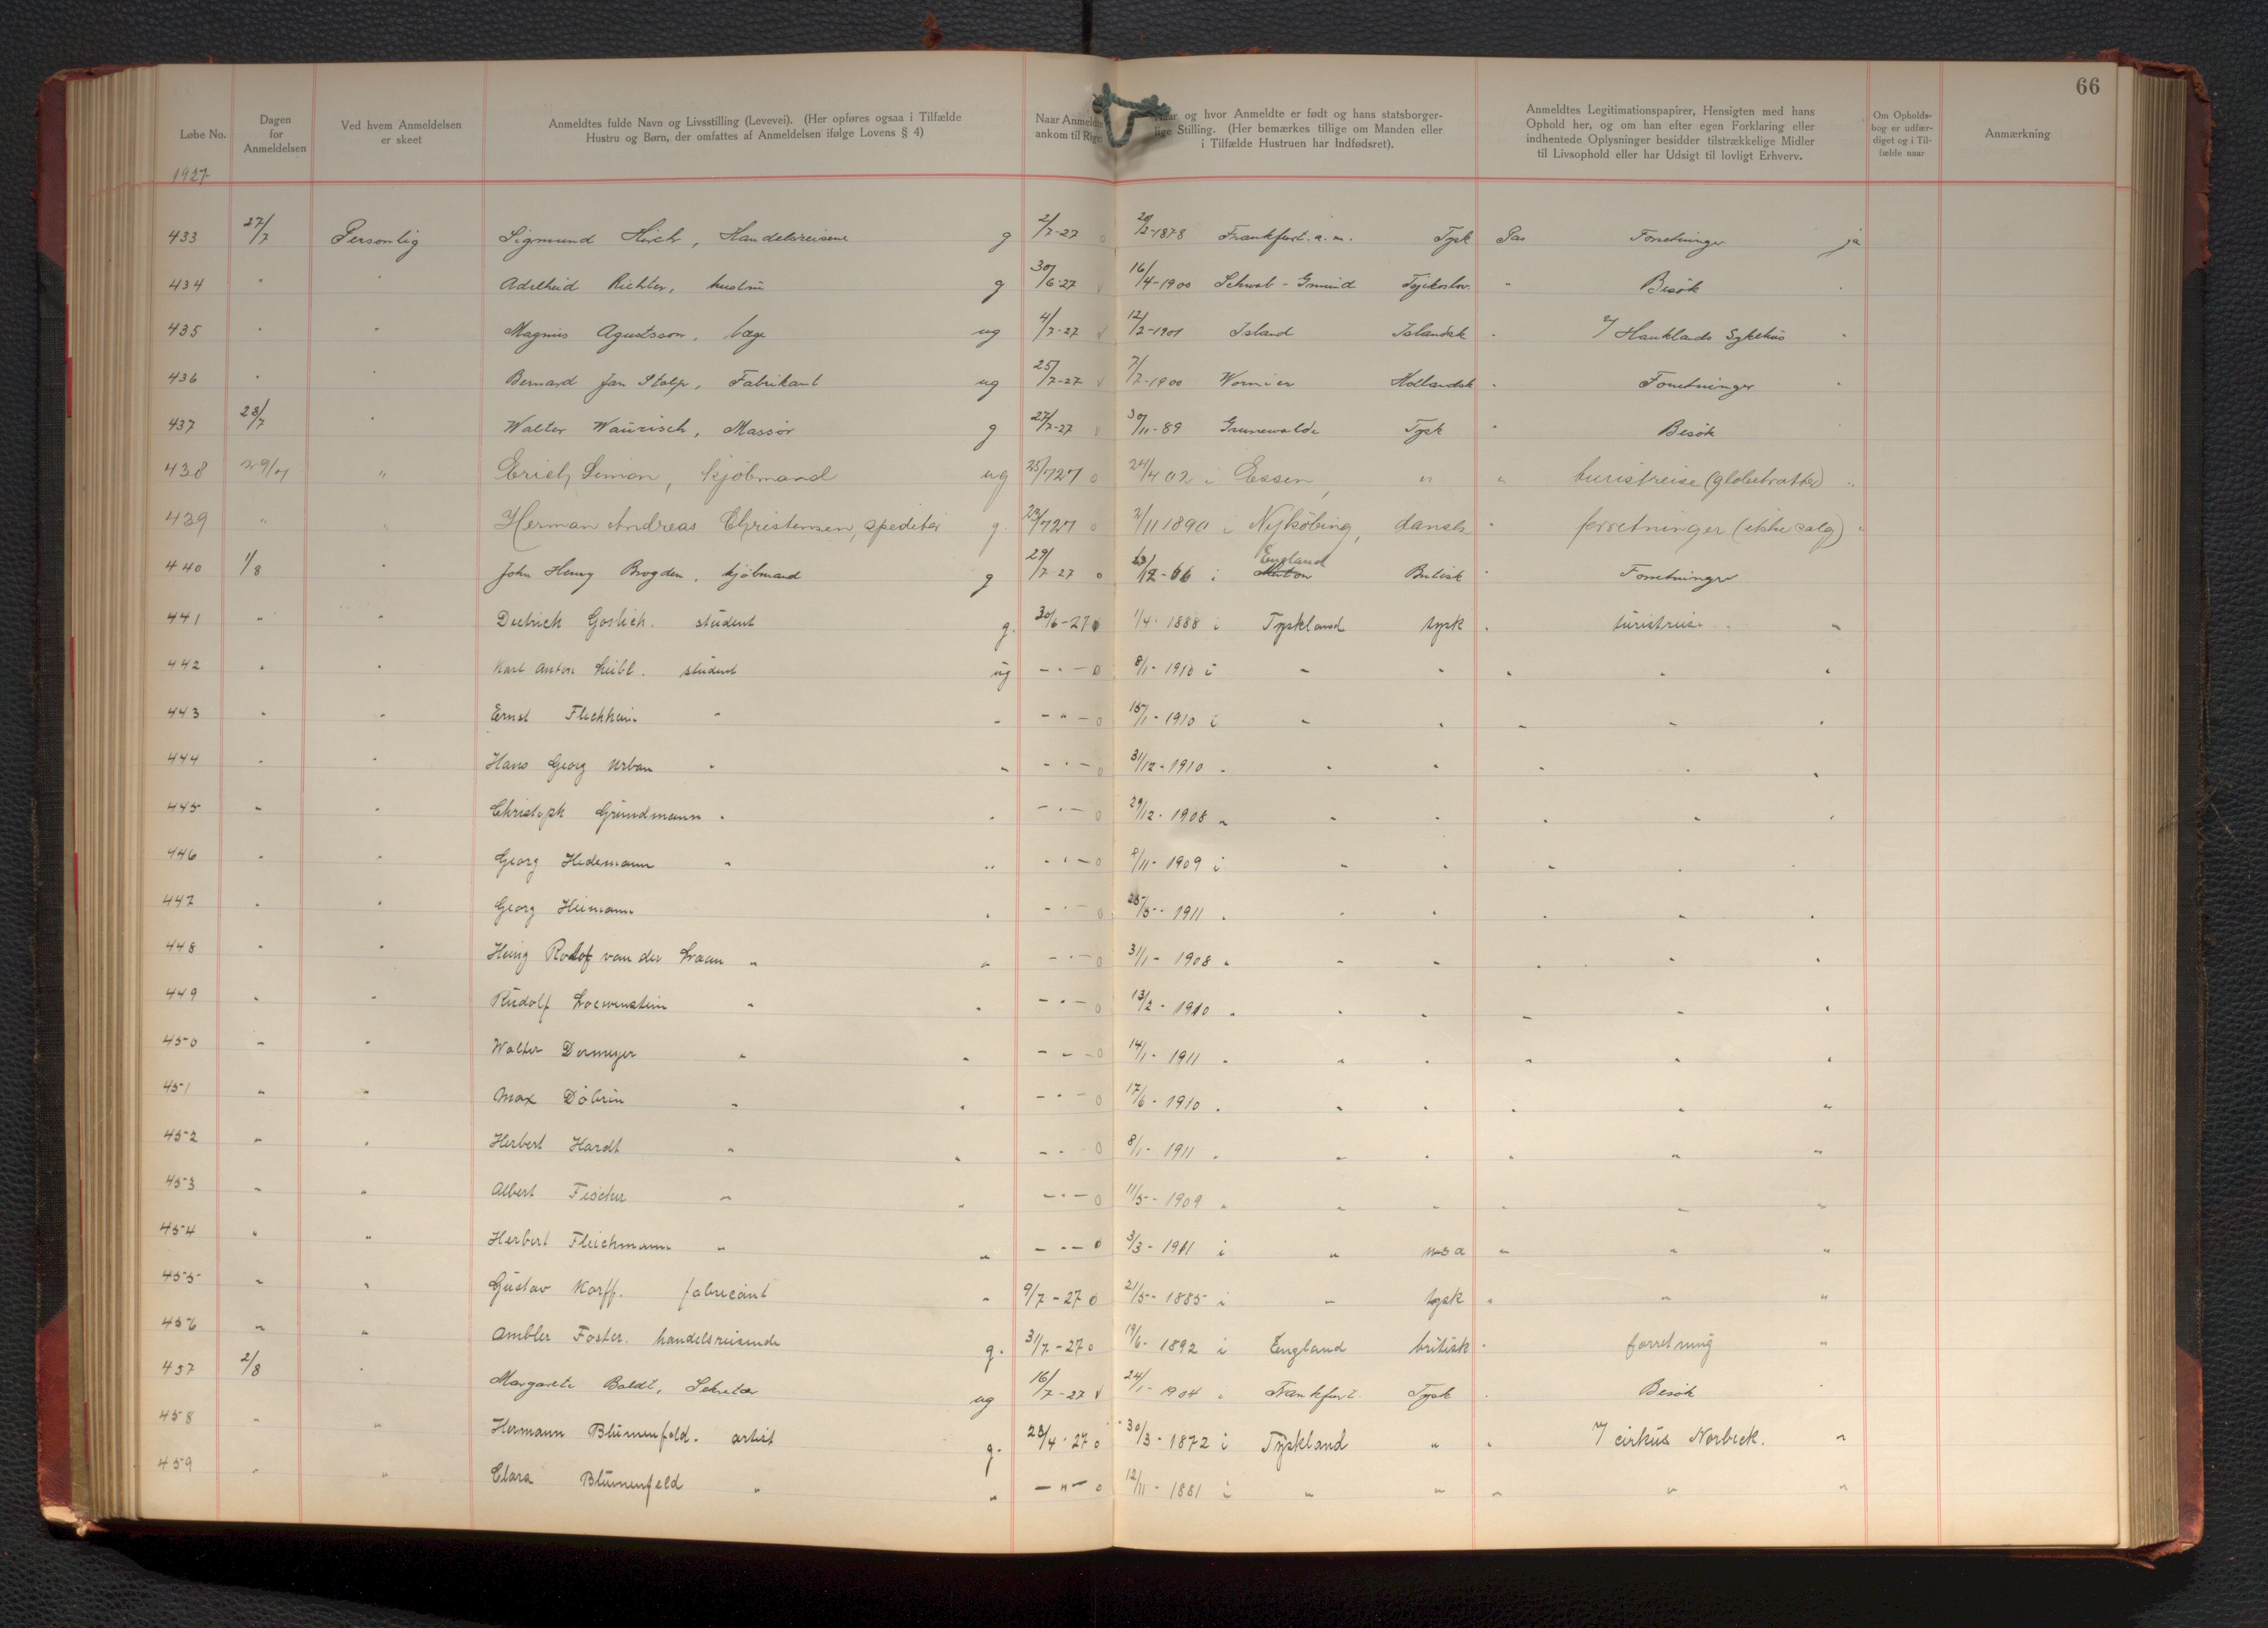 66
Løbe No.
Dagen for Anmeldelsen
Ved hvem Anmeldelsen er skeet
Anmeldtes fulde Navn og Livsstilling (Levevei). (Her opføres ogsaa i Tilfælde Hustru og Børn, der omfattes af Anmeldelsen ifølge Lovens § 4)
Naar Anmeldte ankom til Riget
og hvor Anmeldte er født og hans statsborgerlige Stilling. (Her bemærkes tillige om Manden eller i Tilfælde Hustruen har Indfødsret).
Anmeldtes Legitimationspapirer, Hensigten med hans Ophold her, og om han efter egen Forklaring eller indhentede Oplysninger besidder tilstrækkelige Midler til Livsophold eller har Udsigt til lovligt Erhverv.
Om Opholdsbog er udfærdiget og i Tilfælde naar
Anmærkning
1927
433 27/7 Personlig Sigmund Hirch, Handelsreisene g 2/7-27 o 20/2-1878 Frankfurt. a. m. Tysk Pas Forretninger ja
434 " " Adelheid Richter, hustru g 30/6-27 v 16/4-1900 Schwab-Gmünd Tjekoslov. " Besøk "
435 " " Magnus Agustsson, læge ug 4/7-27 v 12/2-1901 Island Islandsk " v/ Hauklands Sykehus "
436 " " Bernard Jan Stolp, Fabrikant ug 25/7-27 v 7/7-1900 Hollandsk " Forretninger "
437 28/7 " Walter Waurisch, Massör g 27/7-27 v 30/11-89 Grunewalde Tysk " Besök
438 29/7 " Erich Simon, kjöbmand ug 25/7 27 o 24/4 02 i Essen, " " turistreise (globetrotter) "
439 " " Herman Andreas Christensen, speditör g. 23/7 27 o 2/11 1890 i Nyköbing, dansk " forretninger (ikke salg) "
440 1/8 " John Henry Brogden, kjøbmand g 29/7 27 o 13/12-66 i England Britisk " Forretninger
441 " " Dietrich Goslich. student g. 30/6-27 o 1/4-1888 i Tyskland tysk " turistreise "
442 " " Karl Anton student ug - " - o 8/1-1910 i " " " " "
443 " " Ernst Flechheim " " - " - o 15/1-1910 i " " " " "
444 " " Hans Georg Urban " " - " - o 31/12-1910 " " " " " "
445 " " Christoph Grundmann " " - " - o 29/12-1908 " " " " " "
446 " " Georg Hedemann " " - " - o 8/11-1909 i " " " "
447 " " Georg Heimann " - " - o 25/5-1911 " " " " " "
448 " " Heinz Rodolf van der " " - " - o 31/1-1908 " " " " " "
449 " " Rudolf Loewenstein " " - " - o 13/2-1910 " " " " " "
450 " " Walter Dermeyer " " - " - o 14/1-1911 " " " " " "
451 " " Max Döbrin " " - " - o 17/6-1910 " " " " " "
452 " " Herbert Hardt " " - " o 8/1-1911 " " " " " "
453 " " Albert Fischer " " - " - o 11/5-1909 " " " " " "
454 " " Herbert Fleichmann " " - " - o 3/3-1911 i " usa " " "
455 " " Gustav Korff. fabricant " 9/7-27 o 21/5-1885 i " tysk " " "
456 " " Ambler Foster. handelsreisende g. 31/7-27 o 19/6-1892 i England britisk " forretning "
457 2/8 " Margarete Boldt, Sekretær ug 16/7-27 v 24/1-1904 " Frankfurt. Tysk " Besök "
458 " " Hermann Blumenfeld. artist g. 28/4-27 o 30/3-1872 i Tyskland " " v/ cirkus Norbeck. "
459 " " Clara Blumenfeld " " - " - o 12/11-1881 i " " " " "